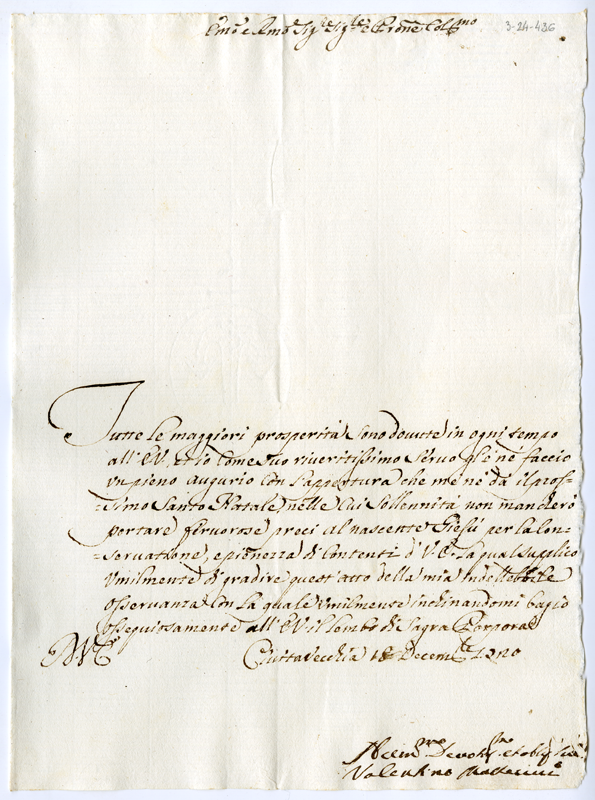 3-24-436
Em.o e Rm.o Sig.re Sig.re e Prone Col.mo
Tutte le maggiori prosperità sono dovute in ogni tempo
all'EV, et io come suo riveritissimo servo gli ne faccio
un pieno augurio con l'appertura che me ne dà il pros-
=simo Santo Natale, nelle cui sollennità non mancherò
portare fervorose preci al nascente Giesù per la con-
=servatione, e pienezza di contenti d'V.E. la qual supplico
umilmente di gradire quest'atto della mia indellebile
osservanza con la quale umilmente inclinandomi bagio
ossequiosamente all'EV il lembo di Sagra Porpora
Civittavecchia 18 Decem.re 1720
Devot.mo et oblig.
Valentino